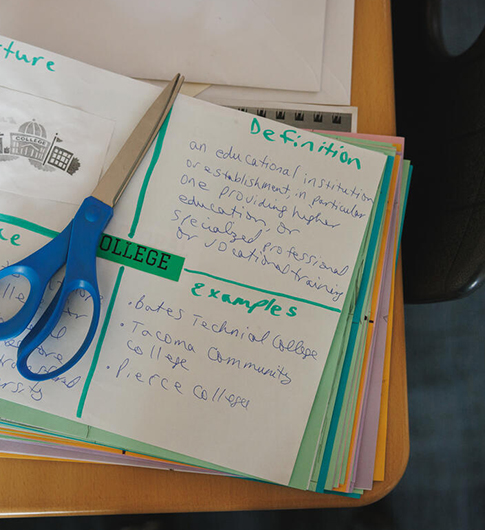 ture
COLLEGE
Definition
an educational institution
or establishment, in particular
one providing higher
education, or
specialized professional
or vocational training
OLLEGE
Examples
• Bates Technical College
• Tacoma Community
college
• Pierce College
ollege
fore
ersity